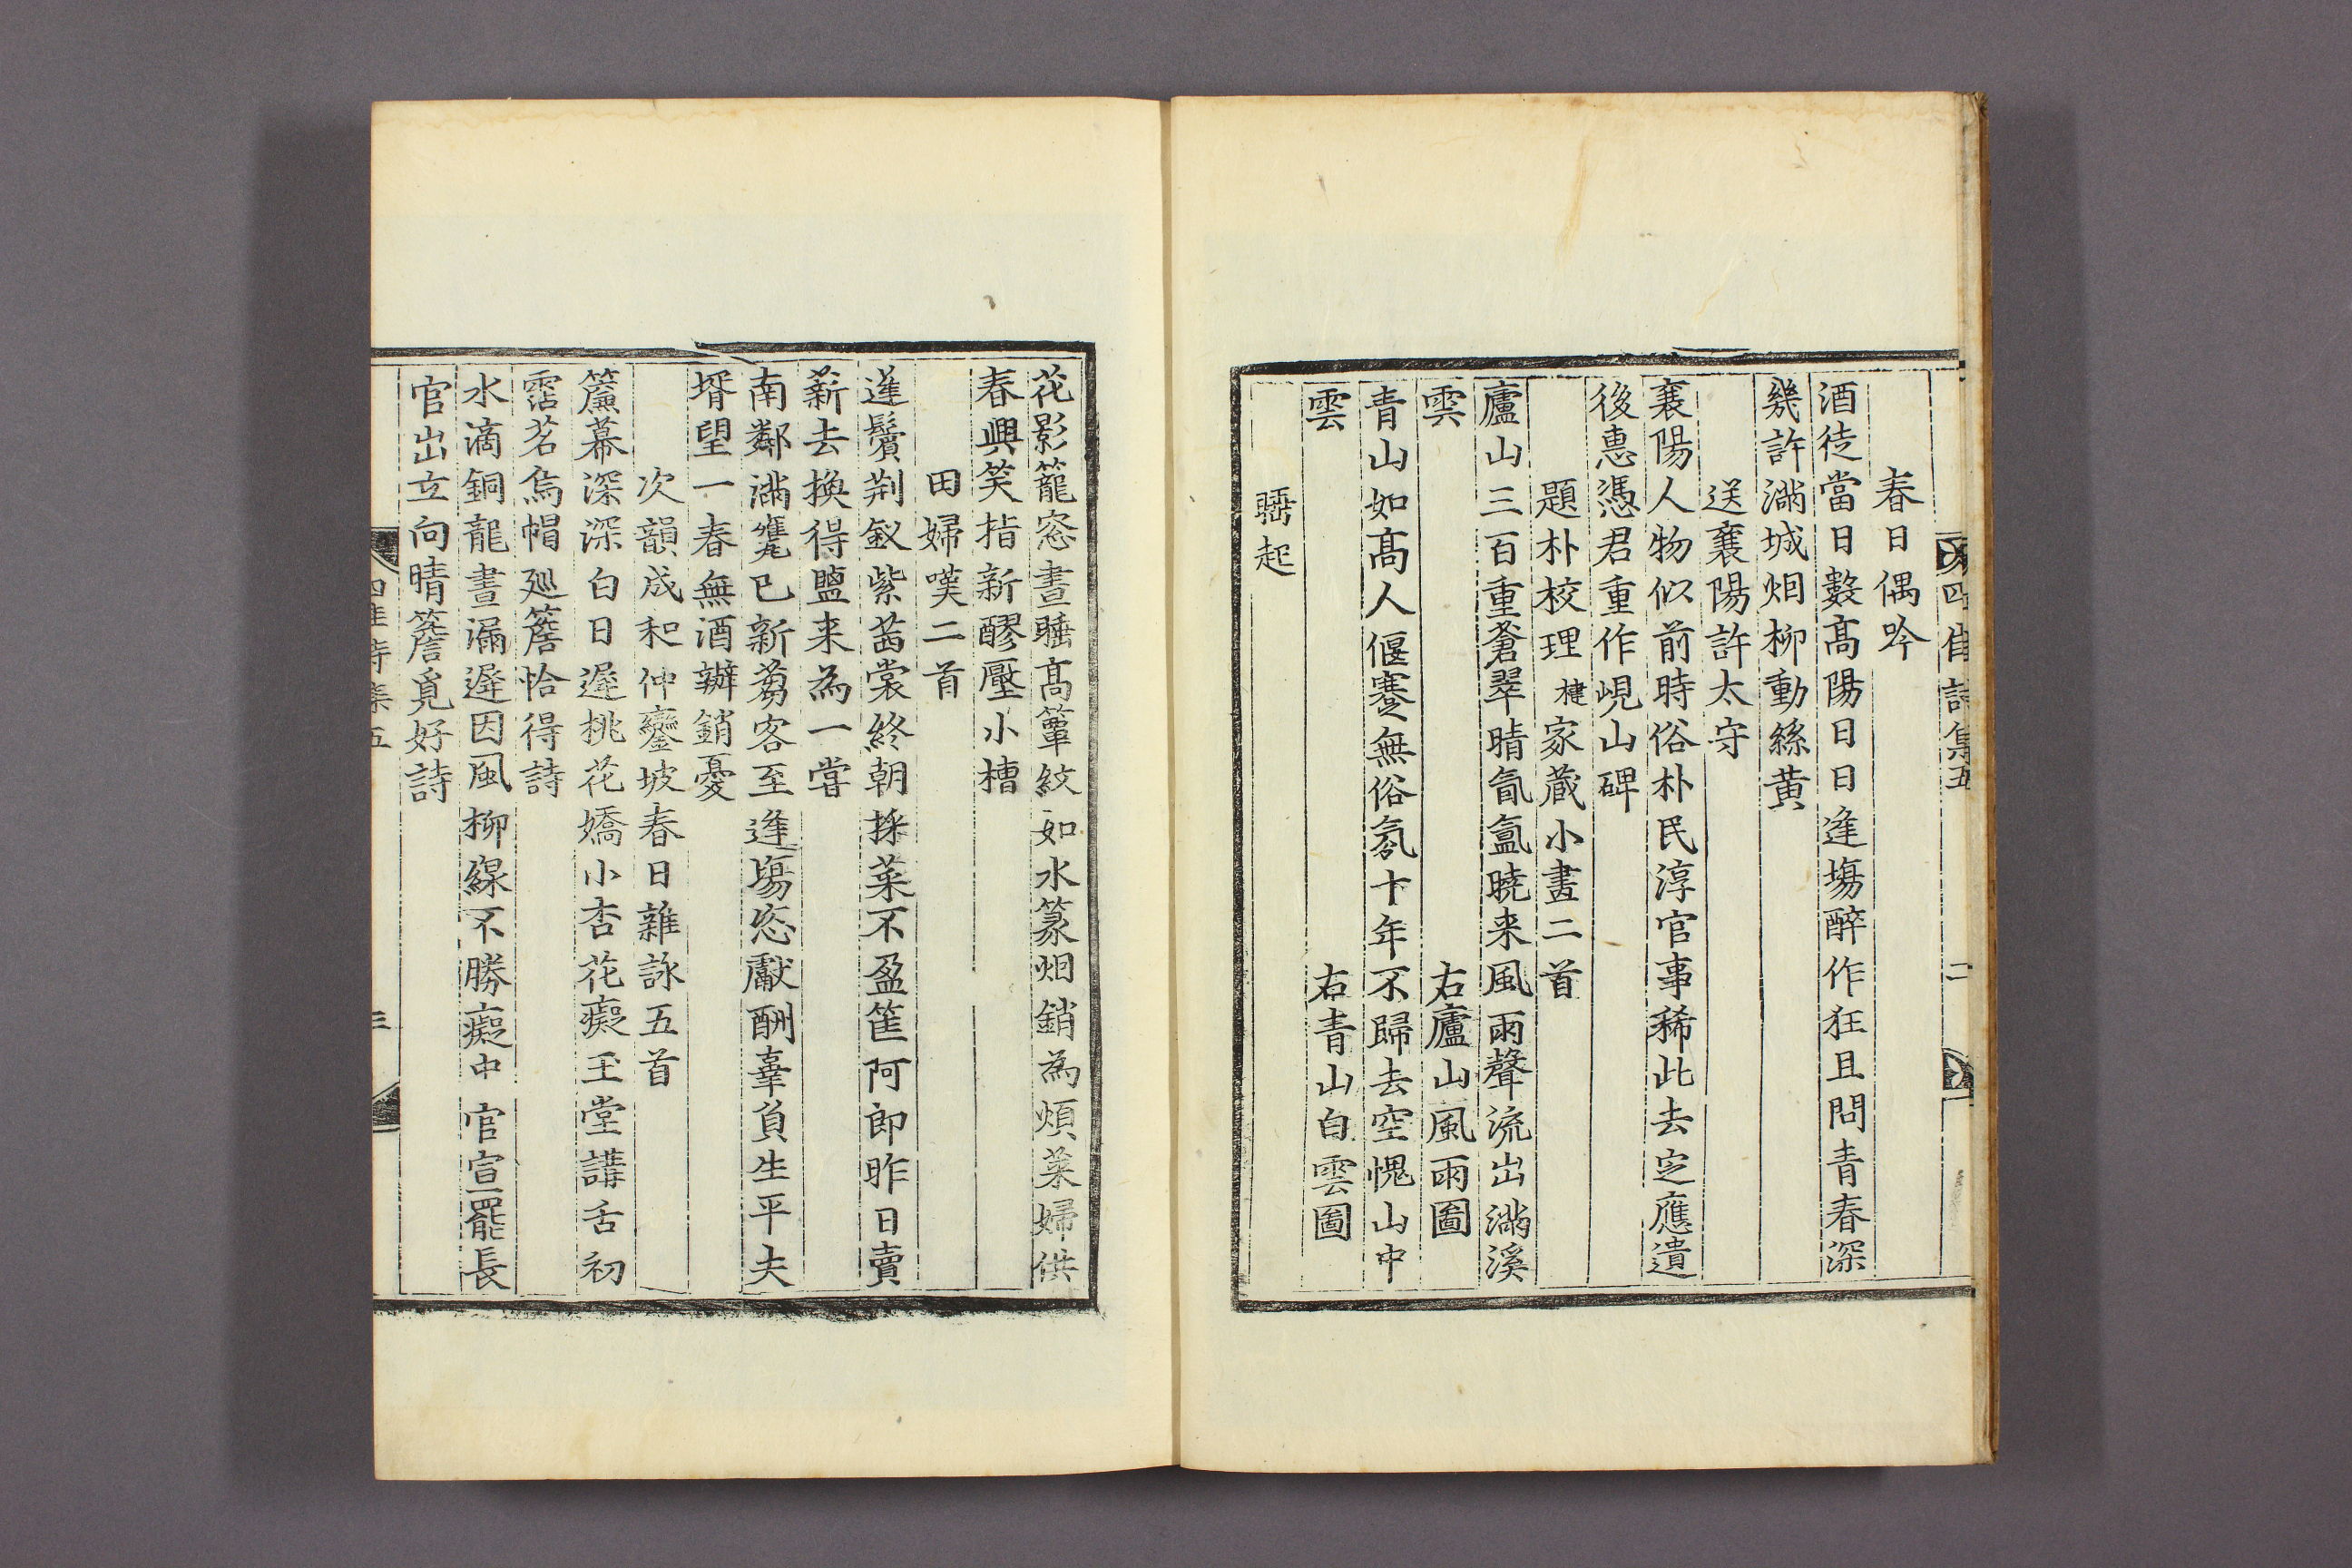 春日偶吟
酒徒當日數髙陽日日逢塲醉作狂且問青春深
幾許滿城烟柳動絲黄
送襄陽許太守
襄陽人物似前時俗朴民淳官事稀此去定應遺
後惠憑君重作峴山碑
題朴校理楗家蔵小畫二首
廬山三百重蒼翠晴氤氳曉来風雨聲流出滿溪
雲 右廬山風雨圖
青山如髙人偃蹇無俗氛十年不歸去空愧山中
雲 右青山白雲圖
睡起
花影籠窓晝睡髙簟紋如水篆烟銷為煩萊婦供
春興笑指新醪壓小槽
田婦嘆二首
蓬鬢荆釵紫茜裳終朝採菜不盈筐阿郎昨日賣
薪去換得鹽来為一嘗
南鄰滿甕已新蒭客至逢塲恣獻酬辜負生平夫
壻望一春無酒辦銷憂
次韻成和仲鑾坡春日雜詠五首
簾幕深深白日遲桃花嬌小杏花癡玉堂講舌初
霑茗烏帽廵簷恰得詩
水滴銅龍晝漏遲因風柳線不勝癡中官宣罷長
官出立向晴簷覓好詩
四佳詩集五 二
四佳詩集五 三